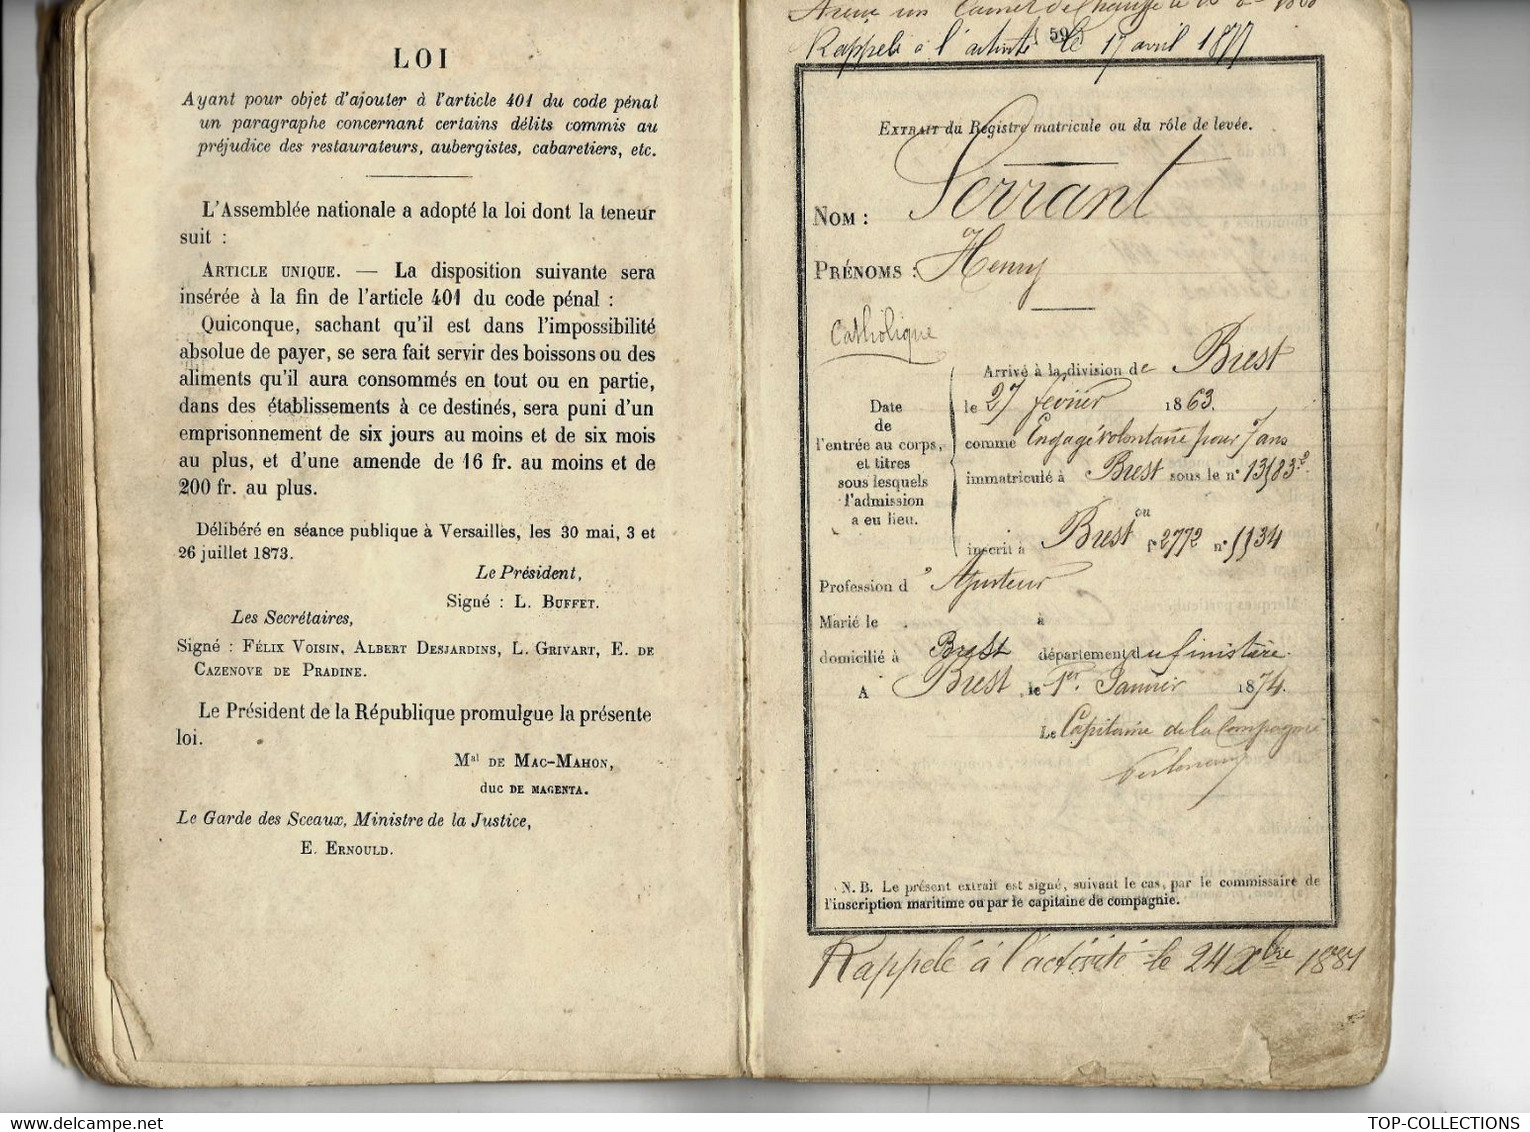 LOI
Ayant pour objet d'ajouter à l'article 401 du code pénal
un paragraphe concernant certains délits commis au
préjudice des restaurateurs, aubergistes, cabaretiers, etc.
L'Assemblée nationale a adopté la loi dont la teneur
suit :
ARTICLE UNIQUE. — La disposition suivante sera
insérée à la fin de l'article 401 du code pénal :
Quiconque, sachant qu'il est dans l'impossibilité
absolue de payer, se sera fait servir des boissons ou des
aliments qu'il aura consommés en tout ou en partie,
dans des établissements à ce destinés, sera puni d'un
emprisonnement de six jours au moins et de six mois
au plus, et d'une amende de 16 fr. au moins et de
200 fr. au plus.
Délibéré en séance publique à Versailles, les 30 mai, 3 et
26 juillet 1873.
Le Président,
Signé : L. BUFFET.
Les Secrétaires,
Signé : FÉLIX VOISIN, ALBERT DESJARDINS, L. GRIVART, E. DE
CAZENOVE DE PRADINE.
Le Président de la République promulgue la présente
loi.
Mal DE MAC-MAHON,
duc DE MAGENTA.
Le Garde des Sceaux, Ministre de la Justice,
E. ERNOULD.
un Carnet de Chauffe
59
Rappelé à l'activité le 17 avril 1877
EXTRAIT du Registre matricule ou du rôle de levée.
NOM : Serrant
PRÉNOMS : Henry
Catholique
Date
de
l'entrée au corps,
et titres
sous lesquels
l'admission
a eu lieu.
Arrivé à la division de Brest
le 27 février 1863.
comme Engagé volontaire pour 7 ans
immatriculé à Brest sous le n° 13183
ou
inscrit à Brest f° 2772 n° 1134
Profession d' Ajusteur
Marié le à
domicilié à Brest département du finistère
A Brest, le 1er Janvier 1874.
Le Capitaine de la Compagnie
N. B. Le présent extrait est signé, suivant le cas, par le commissaire de
l'inscription maritime ou par le capitaine de compagnie.
Rappelé à l'activité le 24 Xbre 1881
TOP-COLLECTIONS